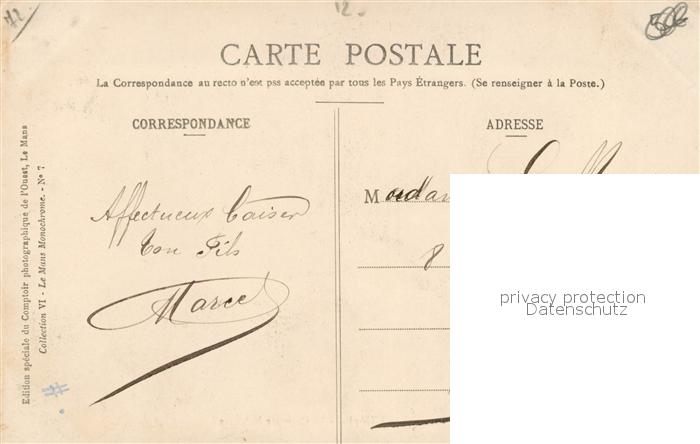 72
12.
CARTE POSTALE
La Correspondance au recto n'est pss acceptée par tous les Pays Étrangers. (Se renseigner à la Poste.)
CORRESPONDANCE
Affectueux baiser
Ton Fils
Marcel
ADRESSE
Madam
8
privacy protection
Datenschutz
Edition spéciale du Comptoir photographique de l'Ouest, Le Mans
Collection VI - Le Mans Monochrome. - No 7